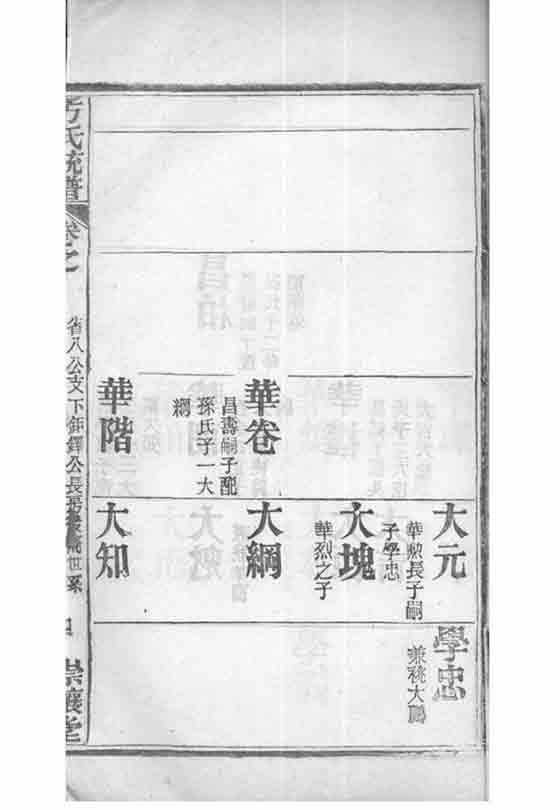 大元
華勲長子嗣
子學忠
大塊
華烈之子
學忠
兼祧大鵬
華卷
昌壽嗣子配
孫氏子一大
綱
大綱
華階
大知
氏統譜
卷之
省八公支下鉅鐸公長房
世系
崇讓堂